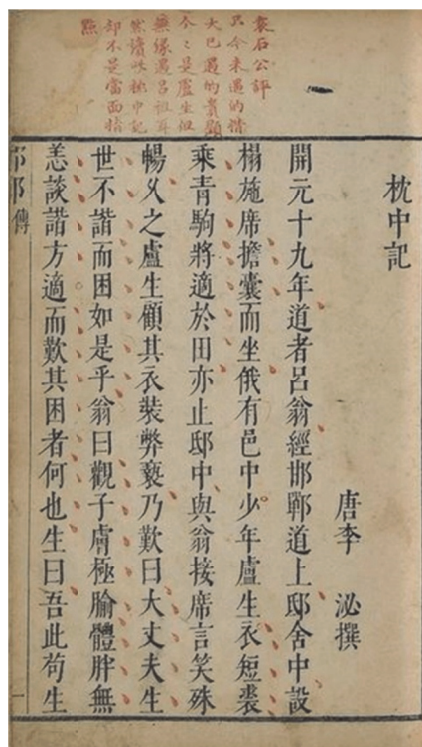 袁石公評
只今未遇的措
大已遇的貴顯
个〻是盧生但
無緣遇呂祖耳
然讀此枕中記
却不是當面指
點
枕中記
唐李 泌撰
開元十九年道者呂翁經邯鄲道上邸舍中設
榻施席擔囊而坐俄有邑中少年盧生衣短裘
乘青駒將適於田亦止邸中與翁接席言笑殊
暢久之盧生顧其衣裝弊褻乃歎曰大丈夫生
世不諧而困如是乎翁曰觀子膚極腧體胖無
恙談諧方適而歎其困者何也生曰吾此苟生
傳 一